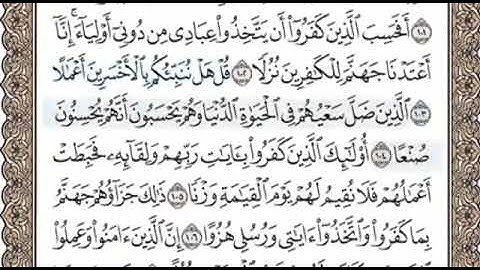 ١٠١ أَفَحَسِبَ ٱلَّذِينَ كَفَرُوٓا۟ أَن يَتَّخِذُوا۟ عِبَادِى مِن دُونِىٓ أَوْلِيَآءَ ۚ إِنَّآ
أَعْتَدْنَا جَهَنَّمَ لِلْكَٰفِرِينَ نُزُلًا ١٠٢ قُلْ هَلْ نُنَبِّئُكُم بِٱلْأَخْسَرِينَ أَعْمَٰلًا
١٠٣ ٱلَّذِينَ ضَلَّ سَعْيُهُمْ فِى ٱلْحَيَوٰةِ ٱلدُّنْيَا وَهُمْ يَحْسَبُونَ أَنَّهُمْ يُحْسِنُونَ
صُنْعًا ١٠٤ أُو۟لَٰٓئِكَ ٱلَّذِينَ كَفَرُوا۟ بِـَٔايَٰتِ رَبِّهِمْ وَلِقَآئِهِۦ فَحَبِطَتْ
أَعْمَٰلُهُمْ فَلَا نُقِيمُ لَهُمْ يَوْمَ ٱلْقِيَٰمَةِ وَزْنًا ١٠٥ ذَٰلِكَ جَزَآؤُهُمْ جَهَنَّمُ
بِمَا كَفَرُوا۟ وَٱتَّخَذُوٓا۟ ءَايَٰتِى وَرُسُلِى هُزُوًا ١٠٦ إِنَّ ٱلَّذِينَ ءَامَنُوا۟ وَعَمِلُوا۟